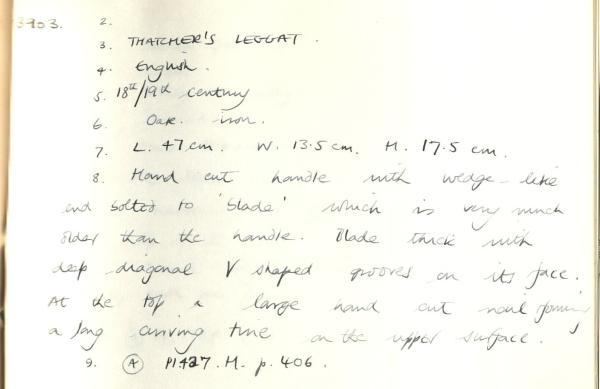 3703. 2.
3. THATCHER'S LEGGAT.
4. English.
5. 18th/19th century
6. Oak. iron.
7. L. 47 cm. W. 13.5 cm. H. 17.5 cm.
8. Hand cut handle with wedge-like
end bolted to 'blade' which is very much
older than the handle. Blade thick with
deep diagonal V shaped grooves on its face.
At the top a large hand cut nail forming
a long curving tine on the upper surface.
9. (A) Pl. 427. M. p. 406.